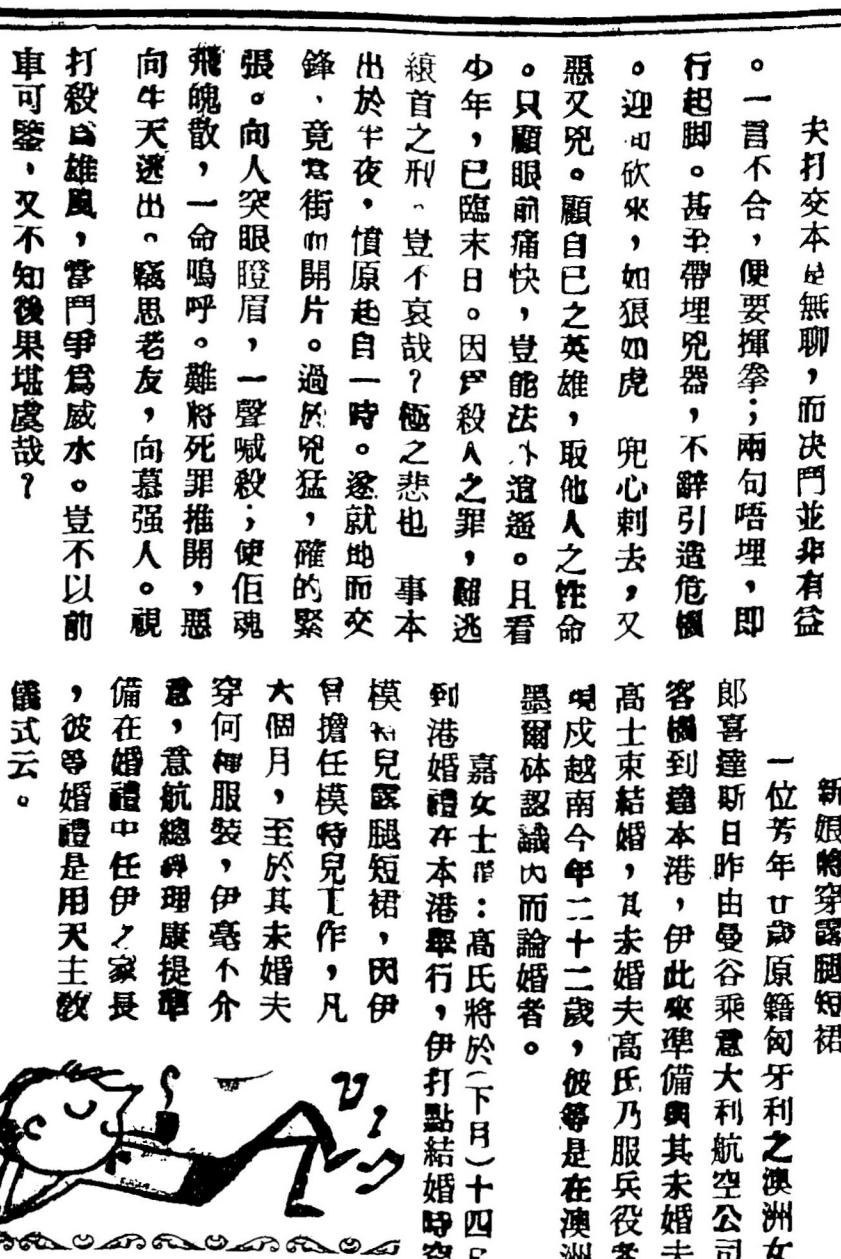 夫打交本是無聊，而決鬥並非有益
。一言不合，便要揮拳；兩句唔埋，即
行起脚。甚至帶埋兇器，不辭引造危機
。迎面砍來，如狼如虎 兜心刺去，又
惡又兇。顧自己之英雄，取他人之性命
。只顧眼前痛快，豈能法外逍遥。且看
少年，已臨末日。因爲殺人之罪，難逃
繯首之刑。豈不哀哉？極之悲也 事本
出於半夜，憤原起自一時。遂就地而交
鋒、竟當街而開片。過於兇猛，確的緊
張。向人突眼瞪眉，一聲喊殺；使佢魂
飛魄散，一命嗚呼。難將死罪推開，惡
向牛天逃出。竊思老友，向慕强人。視
打殺爲雄風，當鬥爭爲威水。豈不以前
車可鑒，又不知後果堪虞哉？
新娘將穿露腿短裙
一位芳年廿歲原籍匈牙利之澳洲女
郎喜達斯日昨由曼谷乘意大利航空公司
客機到達本港，伊此來準備與其未婚夫
高士束結婚，其未婚夫高氏乃服兵役者
現戍越南今年二十二歲，彼等是在澳洲
墨爾砵認識因而論婚者。
嘉女士謂：高氏將於（下月）十四日
到港婚禮在本港舉行，伊打點結婚時穿
模特兒露腿短裙，因伊
曾擔任模特兒工作，凡
六個月，至於其未婚夫
穿何種服裝，伊毫不介
意，意航總經理康提準
備在婚禮中任伊之家長
，彼等婚禮是用天主教
儀式云。